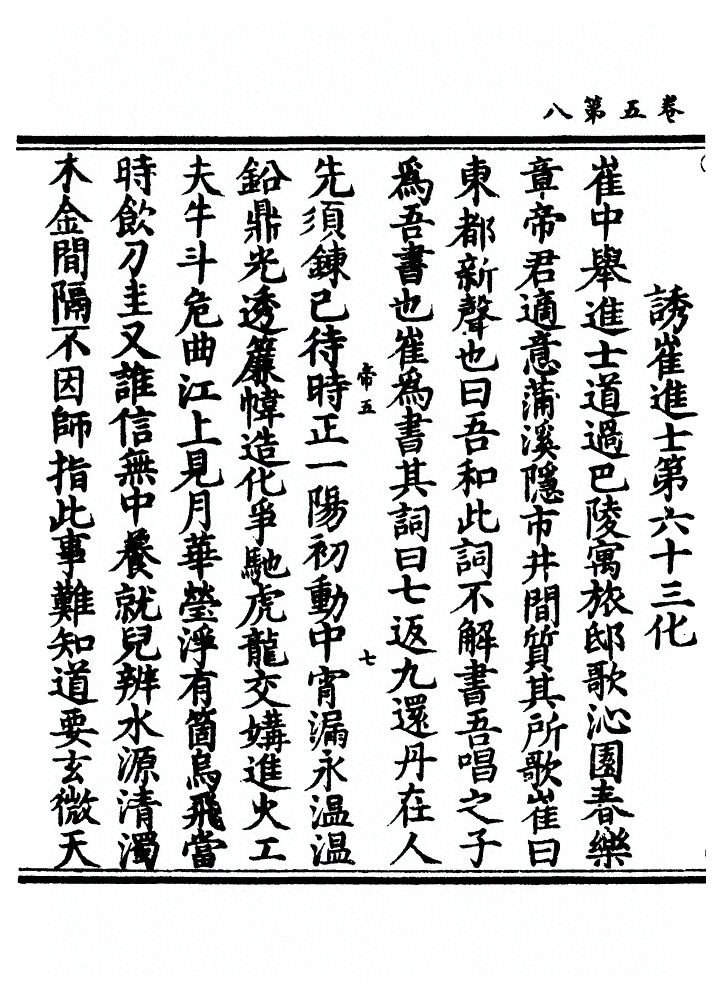 卷五第八
誘崔進士第六十三化
崔中舉進士道過巴陵寓旅邸歌沁園春樂
章帝君適意蒲溪隱市井間質其所歌崔曰
東都新聲也曰吾和此詞不解書吾唱之子
爲吾書也崔爲書其詞曰七返九還丹在人
帝五
七
先須鍊己待時正一陽初動中宵漏永温温
鉛鼎光透簾幃造化爭馳虎龍交媾進火工
夫牛斗危曲江上見月華瑩淨有箇烏飛當
時飲刀圭又誰信無中養就兒辨水源清濁
木金間隔不因師指此事難知道要玄微天